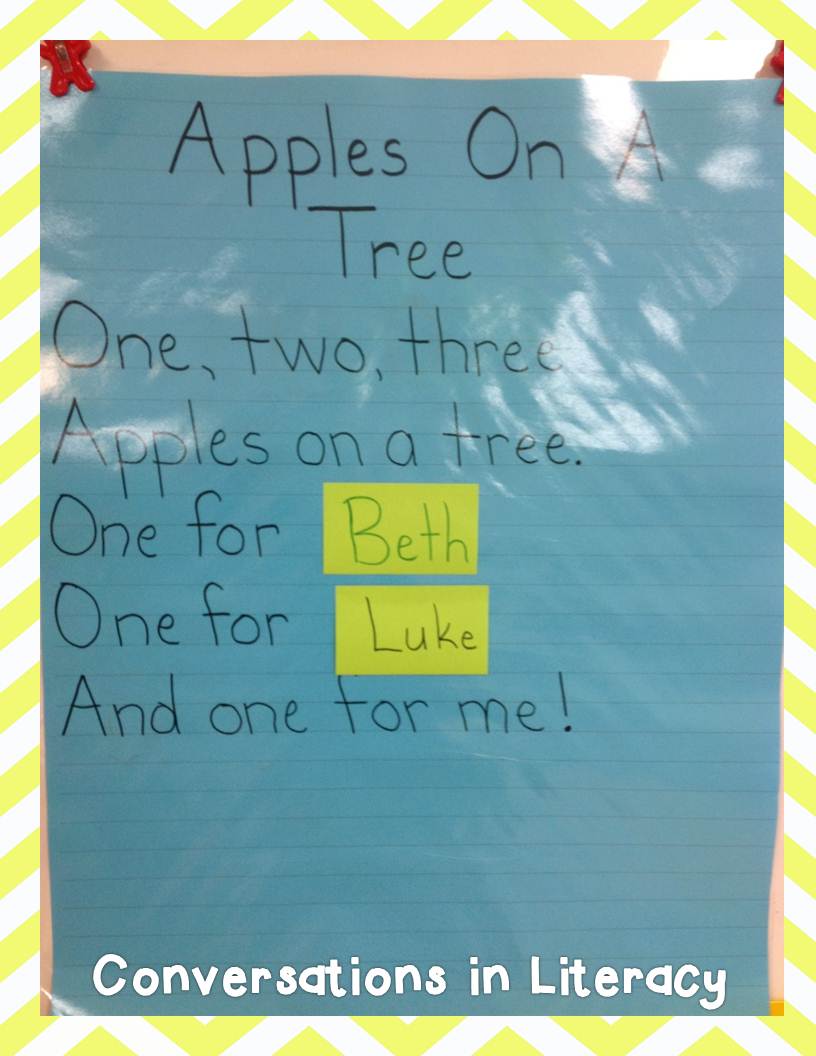 Apples On A
Tree
One, two, three
Apples on a tree.
One for Beth
One for Luke
And one for me!
Conversations in Literacy